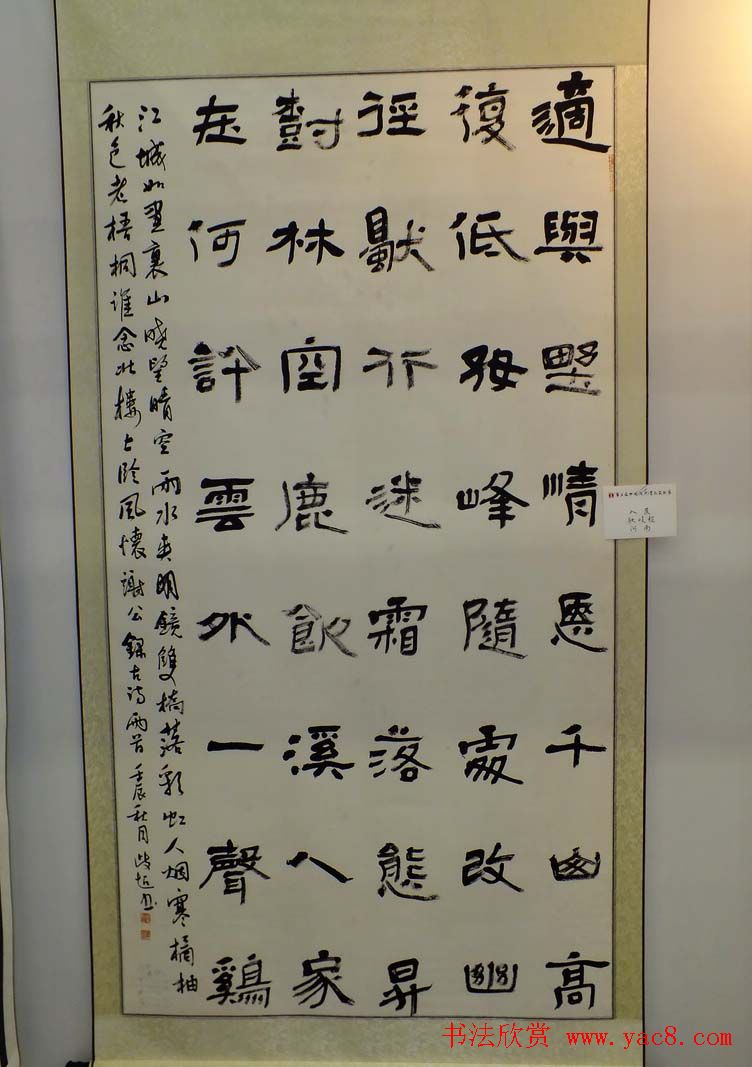 適與野情愜千山高
復低好峰隨處改幽
徑獨行迷霜落熊昇
樹林空鹿飲溪人家
在何許雲外一聲鷄
江城如畫裏山曉望晴空兩水夾明鏡雙橋落彩虹人烟寒橘柚
秋色老梧桐誰念北樓上臨風懷謝公錄古詩兩首壬辰秋月
入展
河南
书法欣赏 www.yac8.com